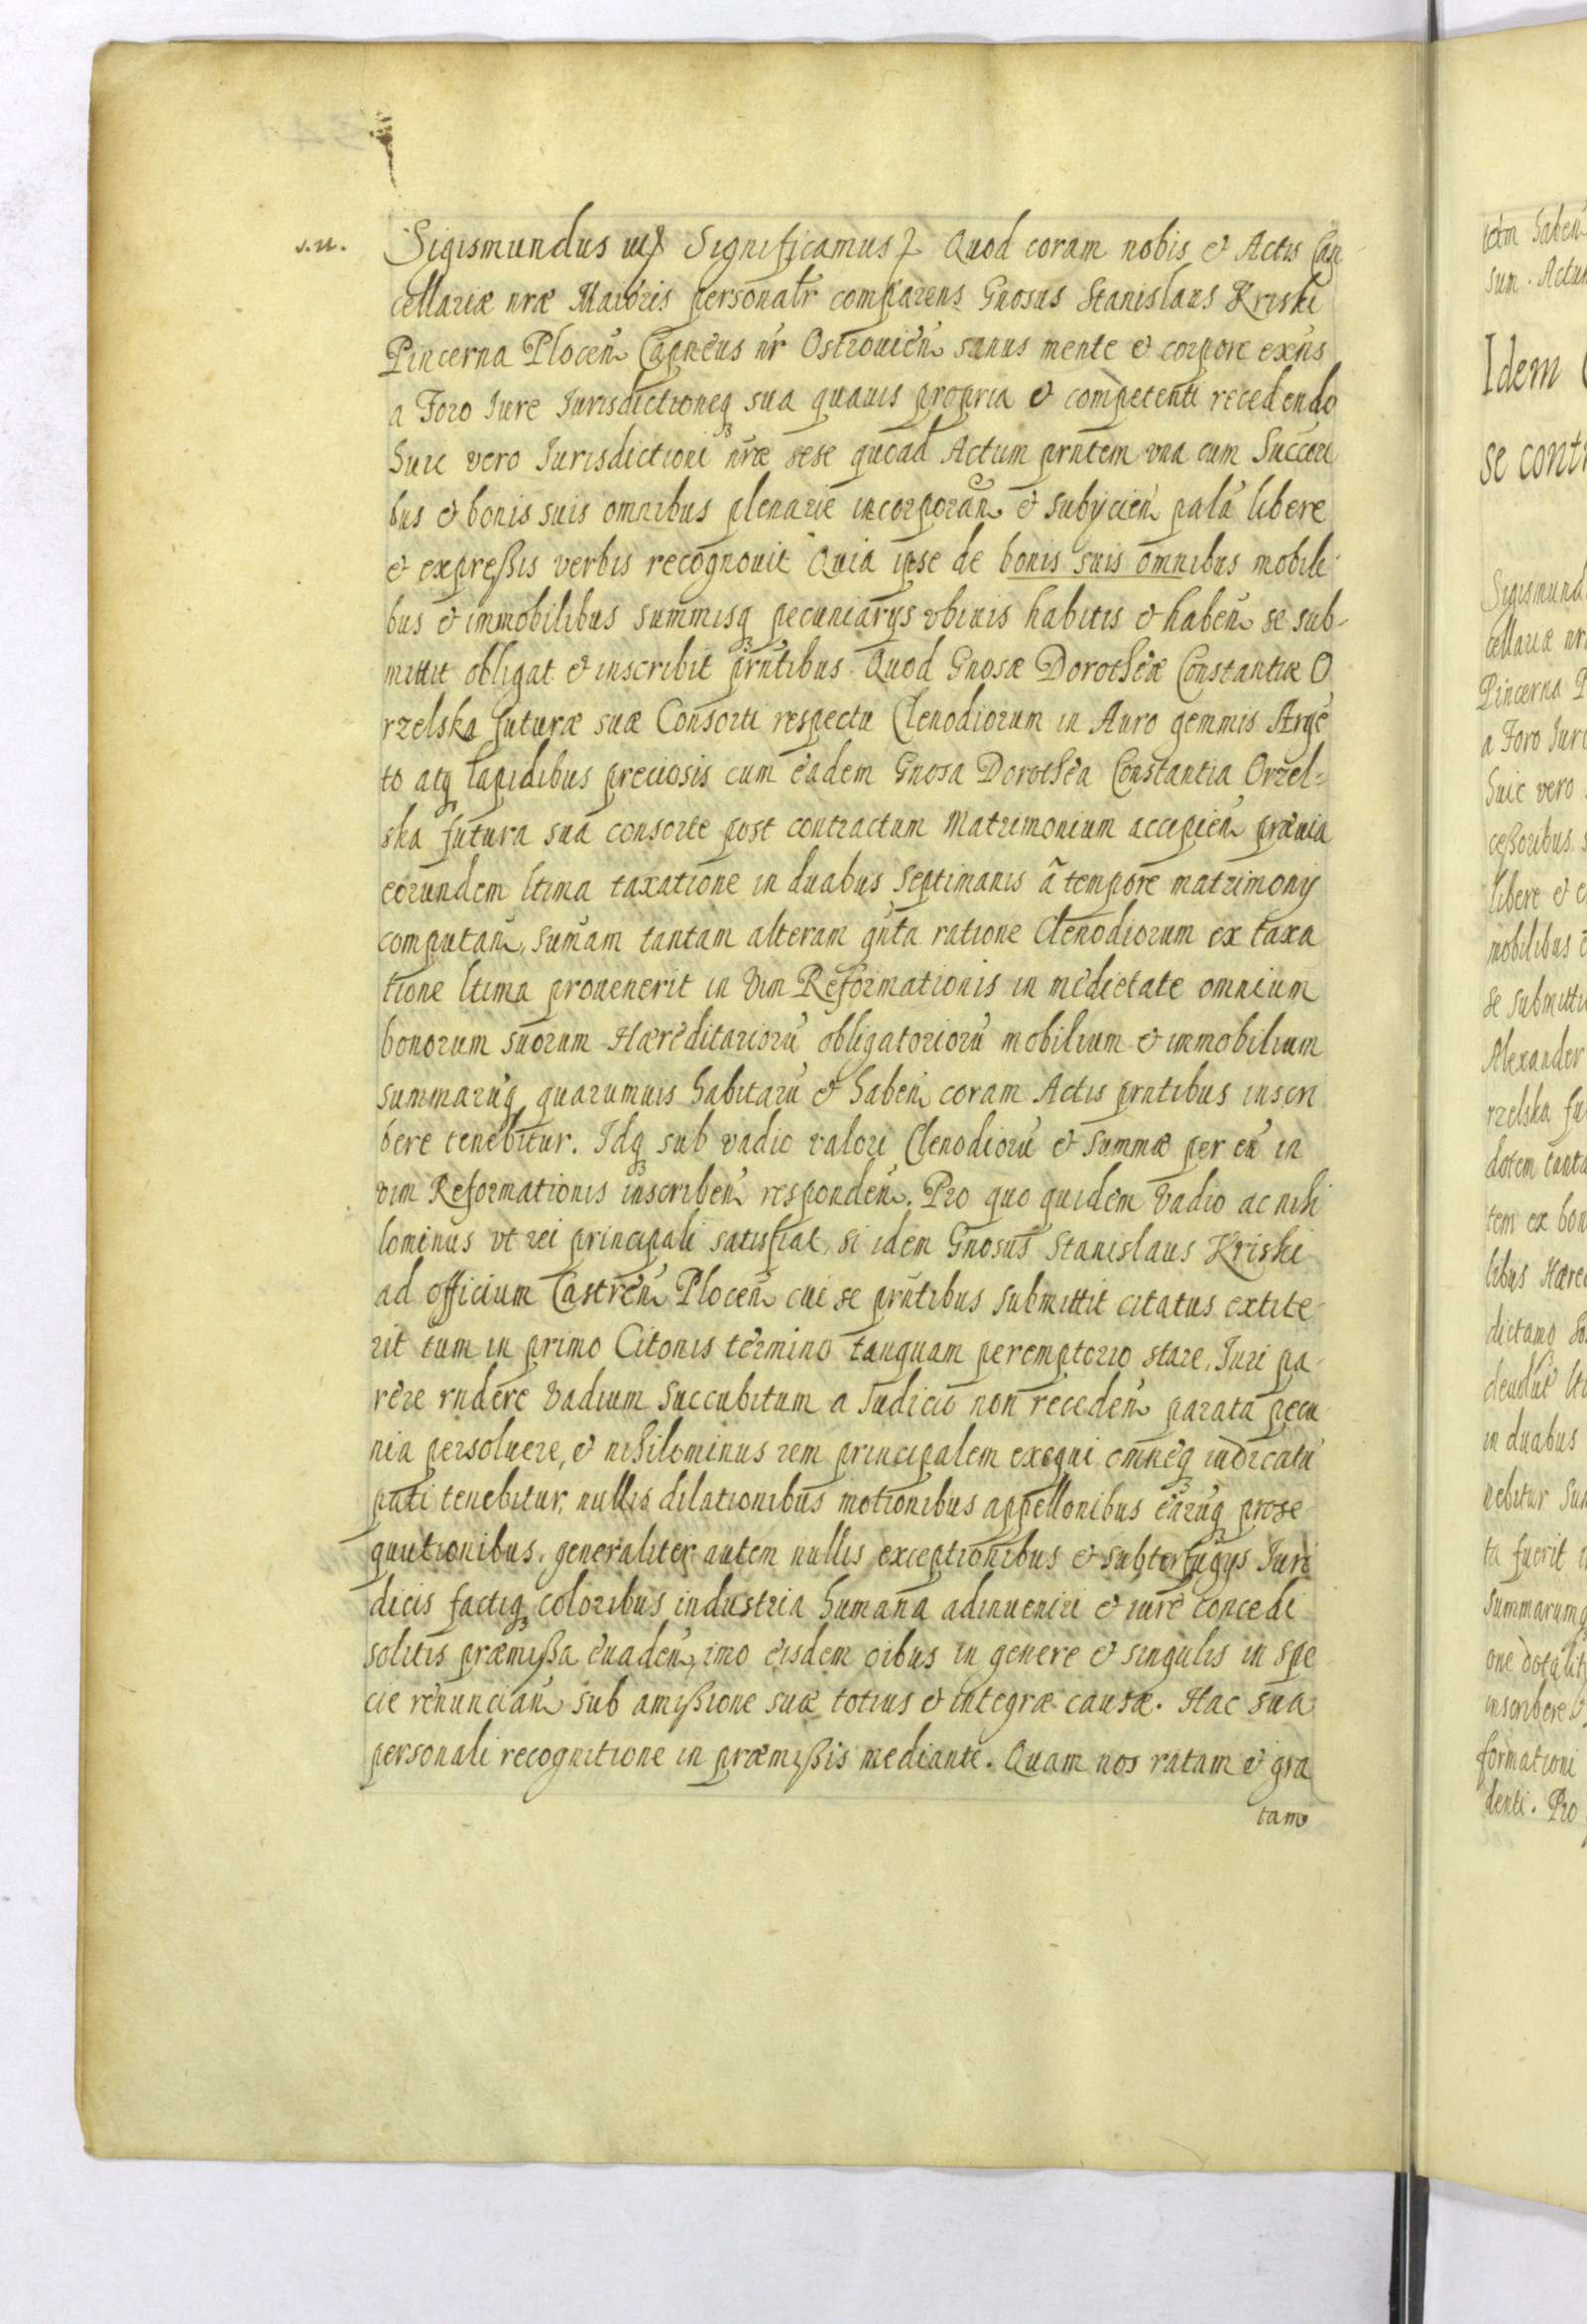 s.n.
Sigismundus III Significamus Quod coram nobis et Actis Can
cellariæ nræ Maioris personalr comparens Gnosus Stanislaus Kriski
Pincerna Plocen Capneus nr Ostrouien sanus mente et corpore exñs
a Foro Iure Iurisdictioneq sua quauis propria et competenti recedendo
Huic vero Iurisdictioni nræ sese quoad Actum prntem vna cum Succori
bus et bonis suis omnibus plenarie incorporan et subijcien palã libere
et expreßis verbis recognouit Quia ipse de bonis suis omnibus mobili
bus et immobilibus summisq pecuniarijs vbiuis habitis et haben se sub-
mittit obligat et inscribit prntibus. Quod Gnosæ Dorotheæ Constantiæ O
rzelska futuræ suæ Consorti respectu Clenodiorum in Auro gemmis Argẽ
to atq lapidibus preciosis cum eadem Gnosa Dorothea Constantia Orzel-
ska futura sua consorte post contractum Matrimonium accipien præuia
eorundem ltima taxatione in duabus Septimanis â tempore matrimonij
computan, sumam tantam alteram qnta ratione Clenodiorum ex taxa
tione ltima prouenerit in Vim Reformationis in medietate omnium
bonorum suorum Hæreditariorũ obligatoriorũ mobilium et immobilium
summarũq quarumuis habitarũ et haben coram Actis prntibus inscri
bere tenebitur. Idq sub vadio valori Clenodiorũ et summæ per eũ in
vim Reformationis inscriben responden. Pro quo quidem Vadio ac nihi
lominus vt rei principali satisfiat, si idem Gnosus Stanislaus Kriski
ad officium Castren Plocen cui se prntibus submittit citatus extite-
rit tum in primo Citonis termino tanquam peremptorio stare, Iuri pa-
rere rndere Vadium succubitum a Iudicio non receden parata pecu
nia persoluere, et nihilominus rem principalem exequi omneq iudicatũ
pati tenebitur, nullis dilationibus motionibus appellonibus earũq prose
quutionibus, generaliter autem nullis exceptionibus et subterfugijs Iuri
dicis factiq coloribus industria humana adinueniri et iure concedi
solitis præmißa euaden, imo eisdem oibus in genere et singulis in spe
cie renuncian sub amißione suæ totius et integræ causæ. Hac sua
personali recognitione in præmißis mediante. Quam nos ratam et gra
tam
tem haben
sum. Actum
Idem
se contr
Sigismund
cellariæ nr
Pincerna P
a Foro Iuri
Huic vero
ceßoribus s
libere et e
mobilibus e
se submitti
Alexander
rzelska fu
dotem tanta
tem ex bon
libus Hæred
in duabus
nebitur Sum
ta fuerit i
Summarumq
one dotalit
inscribere
formationi
denti. Pro